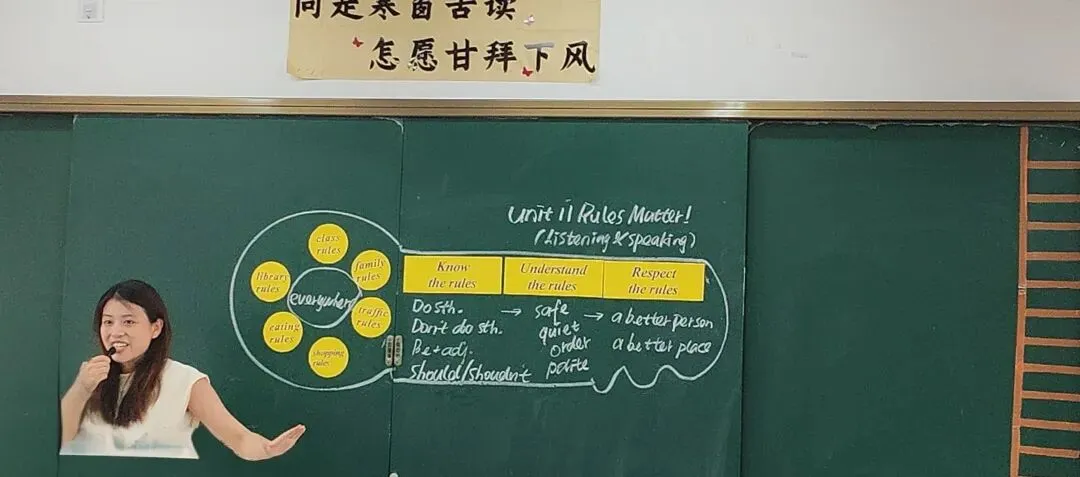 同是寒窗苦读
怎愿甘拜下风
Unit 11 Rules Matter!
(Listening & speaking)
class
rules
family
rules
library
rules
everywhere
traffic
rules
eating
rules
shopping
rules
Know
the rules
Understand
the rules
Respect
the rules
Do sth. → safe → a better person
Don't do sth. quiet
Be+adj. order a better place
Should/Shoudn't polite